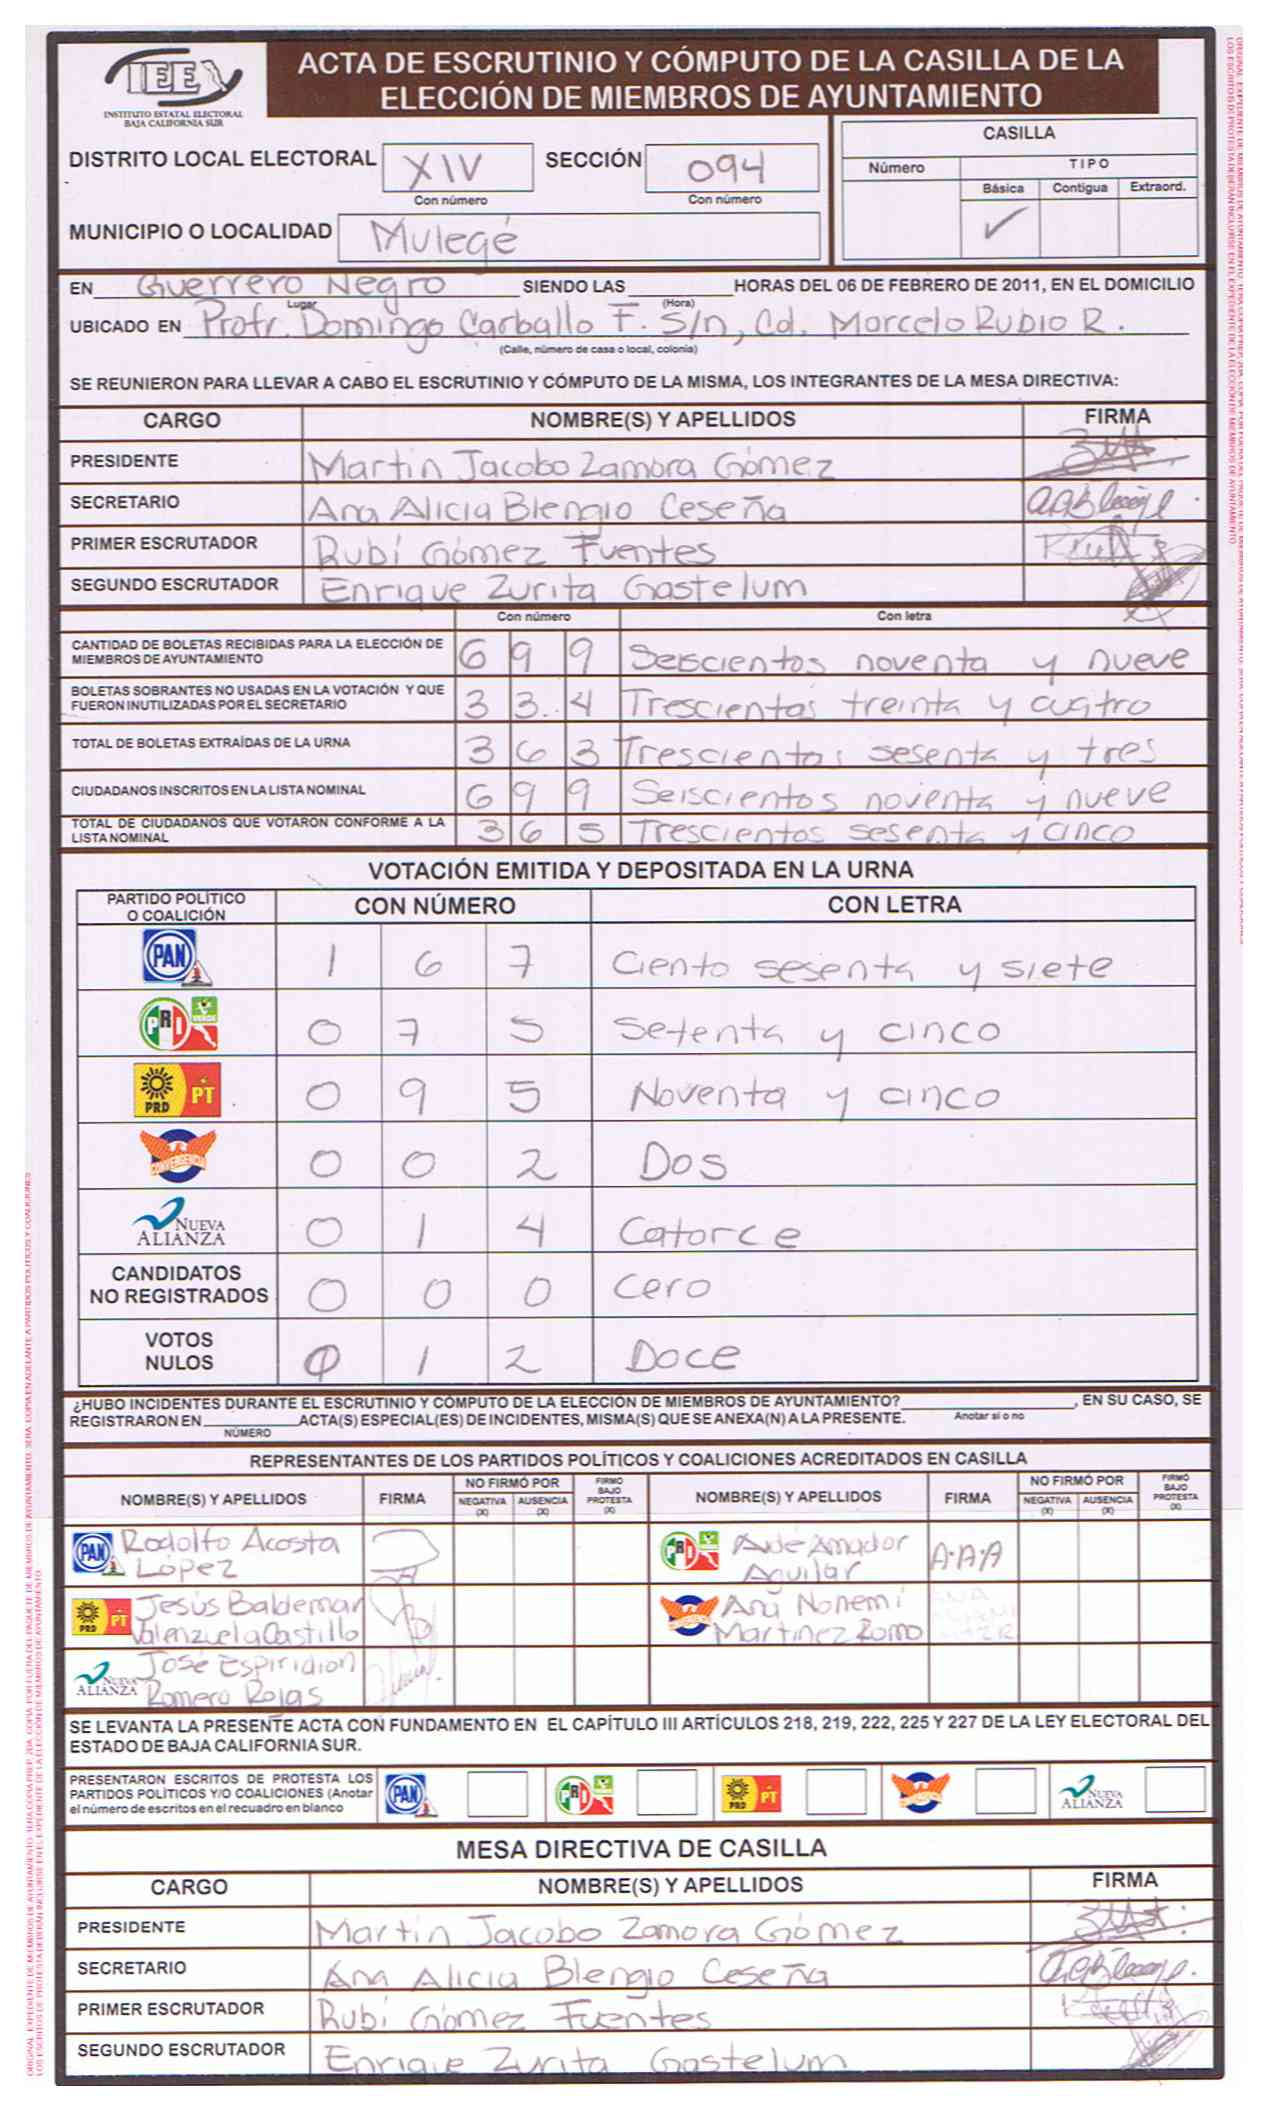 IEE
INSTITUTO ESTATAL ELECTORAL
BAJA CALIFORNIA SUR
ACTA DE ESCRUTINIO Y CÓMPUTO DE LA CASILLA DE LA
ELECCIÓN DE MIEMBROS DE AYUNTAMIENTO
DISTRITO LOCAL ELECTORAL XIV SECCIÓN 094
Con número Con número
MUNICIPIO O LOCALIDAD Mulegé
CASILLA
Número TIPO
Básica Contigua Extraord.
✓
EN Guerrero Negro SIENDO LAS HORAS DEL 06 DE FEBRERO DE 2011, EN EL DOMICILIO
Lugar (Hora)
UBICADO EN Profr. Domingo Carballo F. S/n, Cd. Marcelo Rubio R.
(Calle, número de casa o local, colonia)
SE REUNIERON PARA LLEVAR A CABO EL ESCRUTINIO Y CÓMPUTO DE LA MISMA, LOS INTEGRANTES DE LA MESA DIRECTIVA:
CARGO NOMBRE(S) Y APELLIDOS FIRMA
PRESIDENTE Martín Jacobo Zamora Gómez
SECRETARIO Ana Alicia Blengio Ceseña
PRIMER ESCRUTADOR Rubí Gómez Fuentes
SEGUNDO ESCRUTADOR Enrique Zurita Gastelum
Con número Con letra
CANTIDAD DE BOLETAS RECIBIDAS PARA LA ELECCIÓN DE
MIEMBROS DE AYUNTAMIENTO 6 9 9 Seiscientos noventa y nueve
BOLETAS SOBRANTES NO USADAS EN LA VOTACIÓN Y QUE
FUERON INUTILIZADAS POR EL SECRETARIO 3 3. 4 Trescientos treinta y cuatro
TOTAL DE BOLETAS EXTRAÍDAS DE LA URNA 3 6 3 Trescientos sesenta y tres
CIUDADANOS INSCRITOS EN LA LISTA NOMINAL 6 9 9 Seiscientos noventa y nueve
TOTAL DE CIUDADANOS QUE VOTARON CONFORME A LA
LISTA NOMINAL 3 6 5 Trescientos sesenta y cinco
VOTACIÓN EMITIDA Y DEPOSITADA EN LA URNA
PARTIDO POLÍTICO
O COALICIÓN CON NÚMERO CON LETRA
PAN 1 6 7 Ciento sesenta y siete
PRI VERDE 0 7 5 Setenta y cinco
PRD PT 0 9 5 Noventa y cinco
CONVERGENCIA 0 0 2 Dos
NUEVA ALIANZA 0 1 4 Catorce
CANDIDATOS
NO REGISTRADOS 0 0 0 Cero
VOTOS
NULOS 0 1 2 Doce
¿HUBO INCIDENTES DURANTE EL ESCRUTINIO Y CÓMPUTO DE LA ELECCIÓN DE MIEMBROS DE AYUNTAMIENTO? , EN SU CASO, SE
REGISTRARON EN ACTA(S) ESPECIAL(ES) DE INCIDENTES, MISMA(S) QUE SE ANEXA(N) A LA PRESENTE. Anotar si o no
NÚMERO
REPRESENTANTES DE LOS PARTIDOS POLÍTICOS Y COALICIONES ACREDITADOS EN CASILLA
NOMBRE(S) Y APELLIDOS FIRMA NO FIRMÓ POR NEGATIVA (X) AUSENCIA (X) FIRMÓ BAJO PROTESTA (X) NOMBRE(S) Y APELLIDOS FIRMA NO FIRMÓ POR NEGATIVA (X) AUSENCIA (X) FIRMÓ BAJO PROTESTA (X)
PAN Rodolfo Acosta PRI Aide Amador A.A.A
López Aguilar
PRD PT Jesús Baldemar Ana Nohemí
Valenzuela Castillo Martínez Romo
NUEVA ALIANZA José Espiridion
Romero Rojas
SE LEVANTA LA PRESENTE ACTA CON FUNDAMENTO EN EL CAPÍTULO III ARTÍCULOS 218, 219, 222, 225 Y 227 DE LA LEY ELECTORAL DEL
ESTADO DE BAJA CALIFORNIA SUR.
PRESENTARON ESCRITOS DE PROTESTA LOS
PARTIDOS POLÍTICOS Y/O COALICIONES (Anotar
el número de escritos en el recuadro en blanco
PAN PRI PRD PT NUEVA ALIANZA
MESA DIRECTIVA DE CASILLA
CARGO NOMBRE(S) Y APELLIDOS FIRMA
PRESIDENTE Martín Jacobo Zamora Gómez
SECRETARIO Ana Alicia Blengio Ceseña
PRIMER ESCRUTADOR Rubí Gómez Fuentes
SEGUNDO ESCRUTADOR Enrique Zurita Gastelum